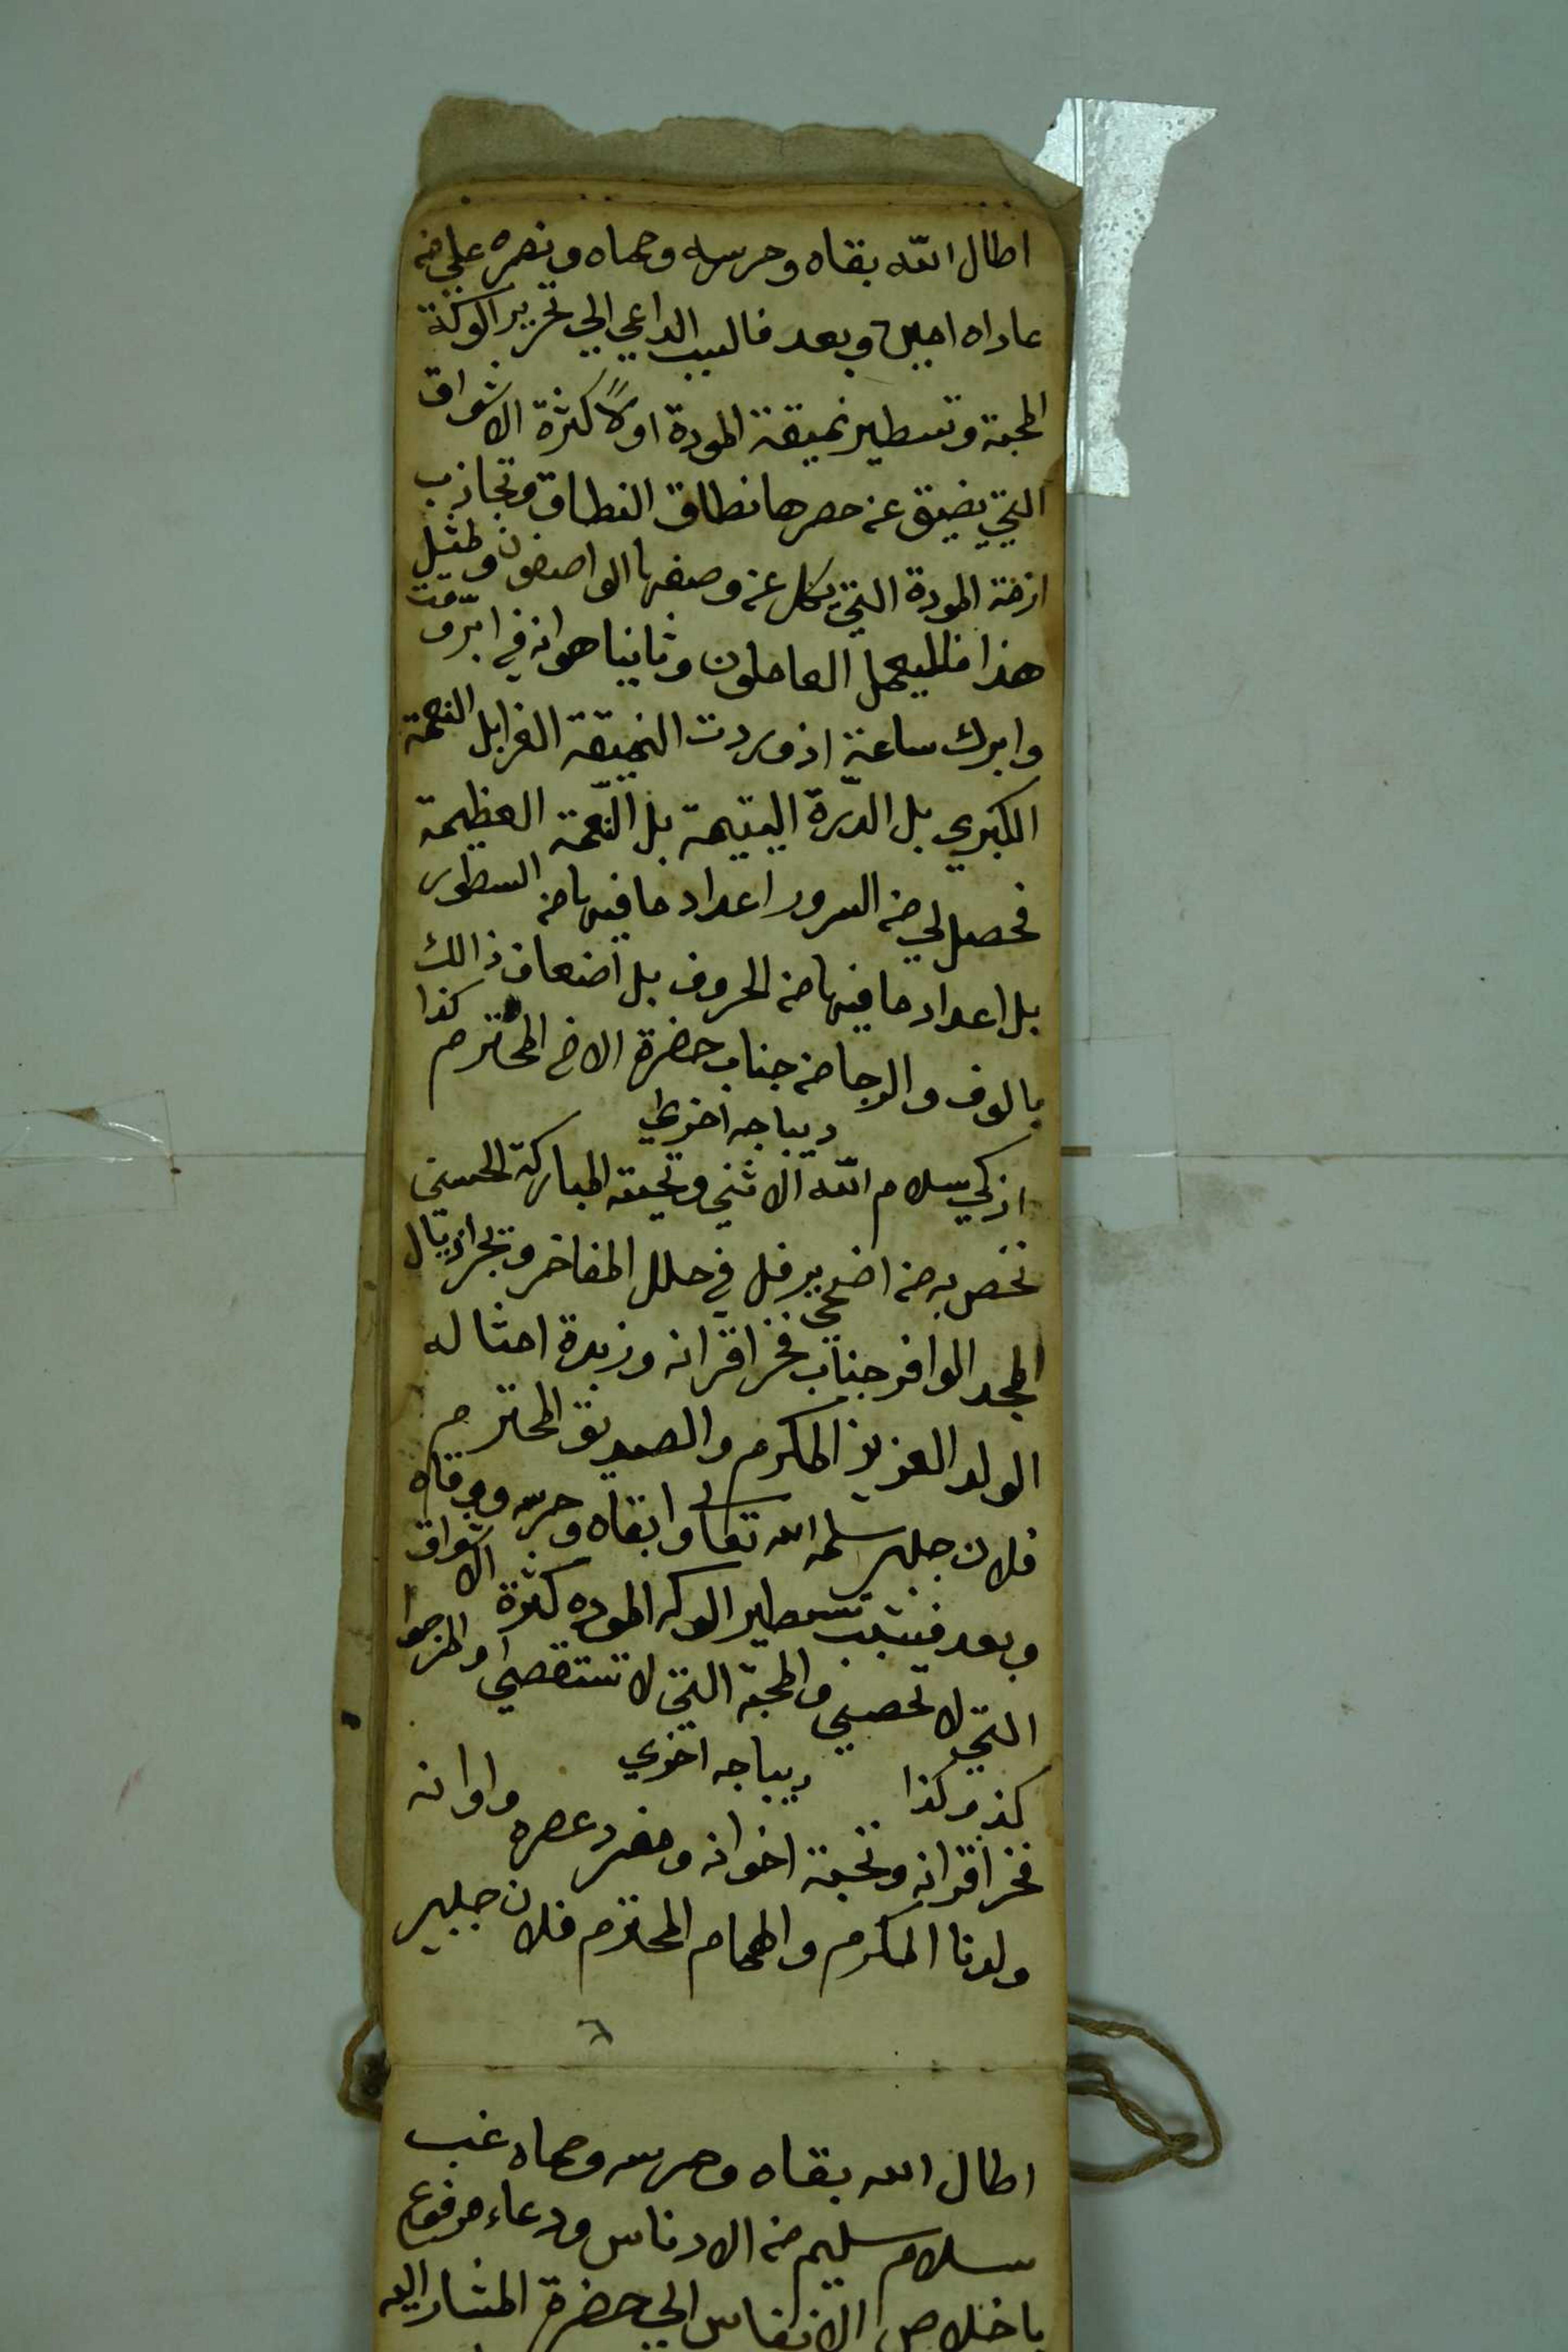 اطال الله بقاه وحرسه وحماه ونصره علي من
عاداه امين وبعد فالسبب الداعي الي تحرير الوكة
المحبة وتسطير نميقة المودة اولاً كثرة الاشواق
التي يضيق عن حصرها نطاق النطاق وتجاذب
ازمة المودة التي يكل عن وصفها الواصفون ولمثل
هذا فليعمل العاملون وثانيا هو انه في ابرّ وقت
وابرك ساعة اذ وردت النميقة الغرا بل النعمة
الكبري بل الدرّة اليتيمة بل النّعمة العظيمة
فحصل لي من السرور اعداد ما فيها من السطور
بل اعداد ما فيها من الحروف بل اضعاف ذالك
بالوف والرجا من جناب حضرة الاخ المحترم كذا
ديباجه اخري
ازكي سلام الله الاثني وتحيته المباركة الحسني
نخص به من اضحي يرفل في حلل المفاخر ويجر اذيال
المجد الوافر جناب فخر اقرانه وزبدة امثاله
الولد العزيز المكرم والصديق المحترم
فلان جلبي سلمه الله تعالى وابقاه وحرسه ووقاه
وبعد فسبب تسطير الوكه الموده كثرة الاشواق
التي لا تحصي والمحبة التي لا تستقصي والمرجوا
كذا وكذا ديباجه اخري
فخر اقرانه ونخبة اخوانه ومفرد عصره واوانه
ولدنا المكرم والهمام المحترم فلان جلبي
٦
اطال الله بقاه وحرسه وحماه غب
سلام سليم من الادناس ودعاء مرفوع
باخلاص الانفاس الي حضرة المشار اليه